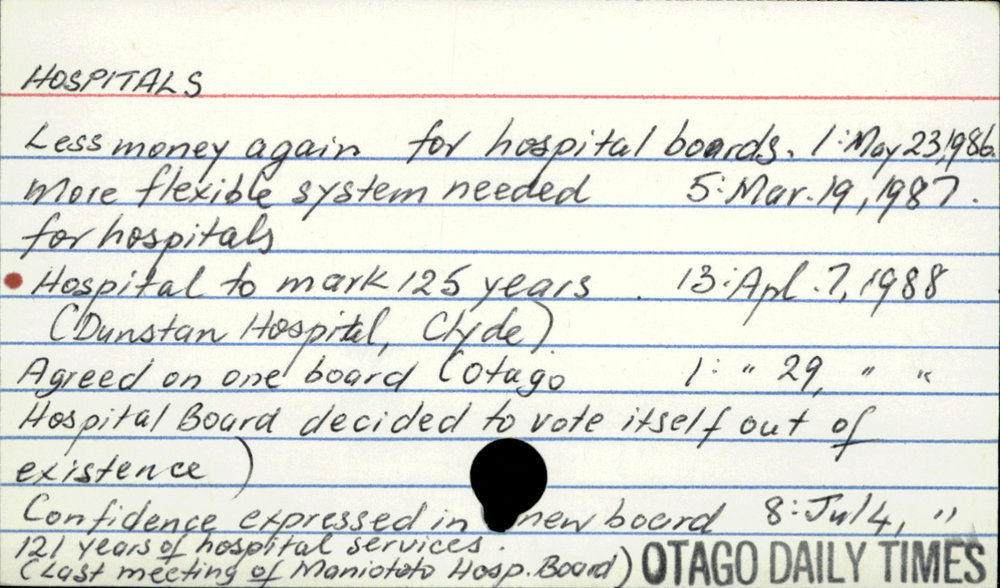 HOSPITALS
Less money again for hospital boards. 1: May 23, 1986.
More flexible system needed 5: Mar. 19, 1987.
for hospitals
Hospital to mark 125 years. 13: Apl. 7, 1988
(Dunstan Hospital, Clyde)
Agreed on one board (Otago 1: " 29, " "
Hospital Board decided to vote itself out of
existence)
Confidence expressed in new board 8: Jul 4, "
121 years of hospital services.
(Last meeting of Maniototo Hosp. Board) OTAGO DAILY TIMES